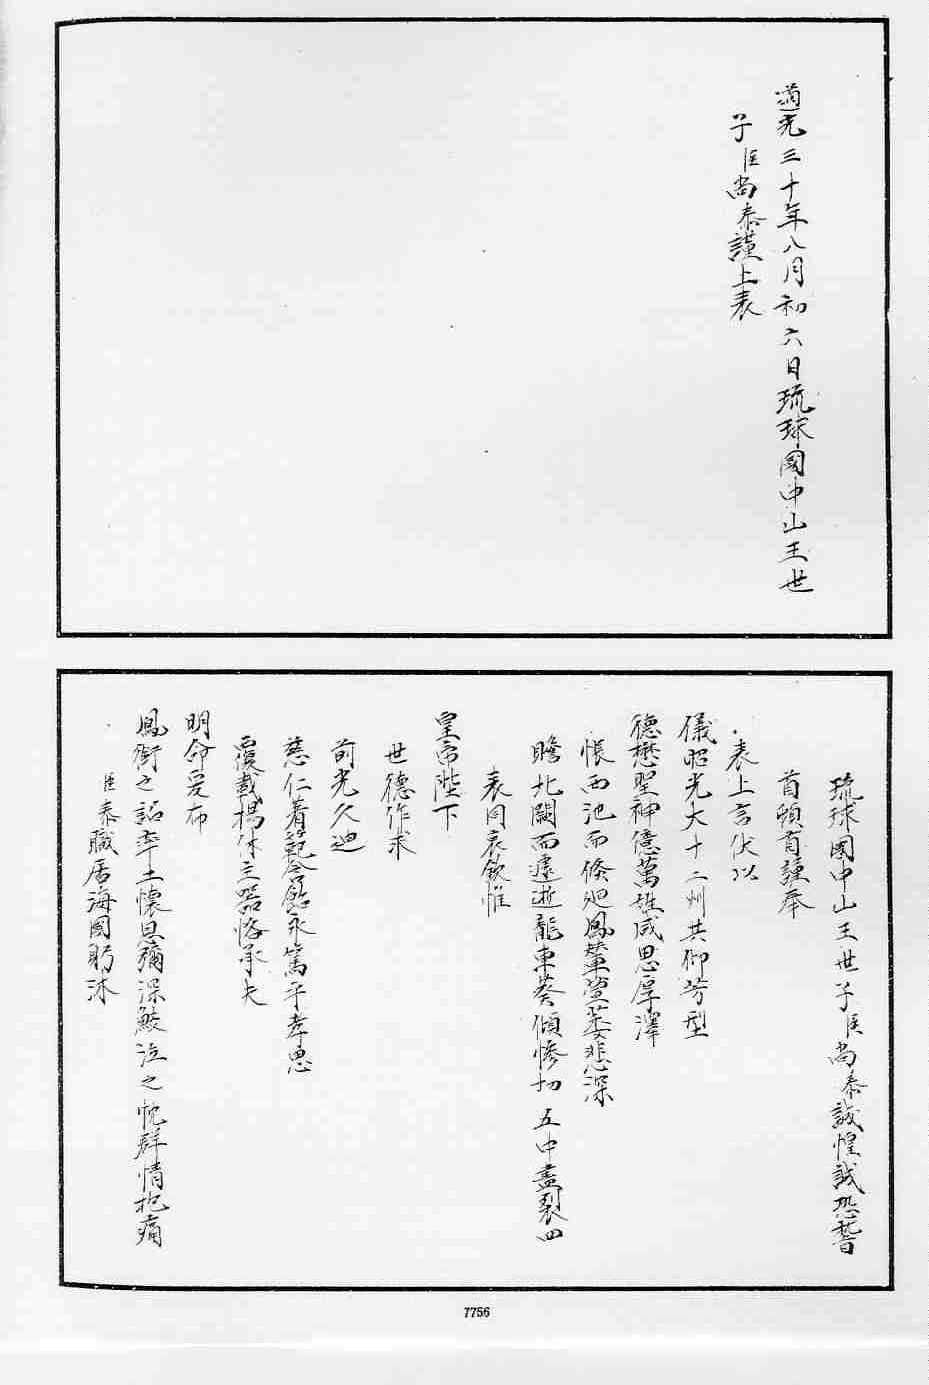 道光三十年八月初六日琉球國中山王世
子臣尚泰謹上表
琉球國中山王世子臣尚泰誠惶誠恐稽
首頓首謹奉
表上言伏以
儀昭光大十二州共仰芳型
德懋聖神億萬姓咸思厚澤
悵西池而倐廻鳳輦萱萎悲深
瞻北闕而遽逝龍東葵傾慘切五中盡裂四
表同哀欽惟
皇帝陛下
世德作求
前光久迪
慈仁著範念餘永篤乎孝思
覆載揚休主器恪承夫
明命爰布
鳳銜之詔率土懷恩彌深鮫泣之忱群情抱痛
臣泰職居海國躬沐
7756